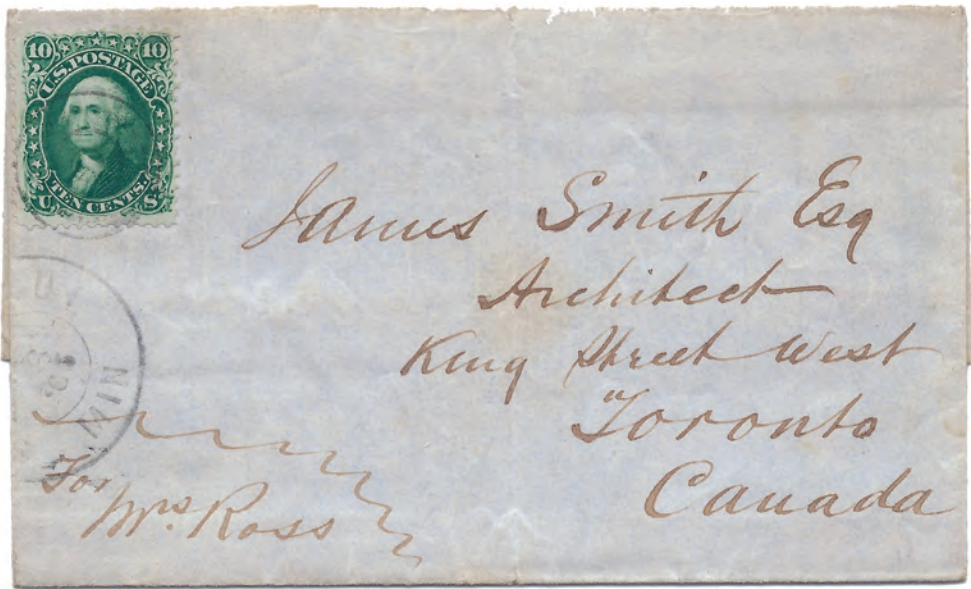 10 10
U.S. POSTAGE
TEN CENTS.
U S
James Smith Esq
Architect
King Street West
Toronto
Canada
For
Mrs. Ross
MIN